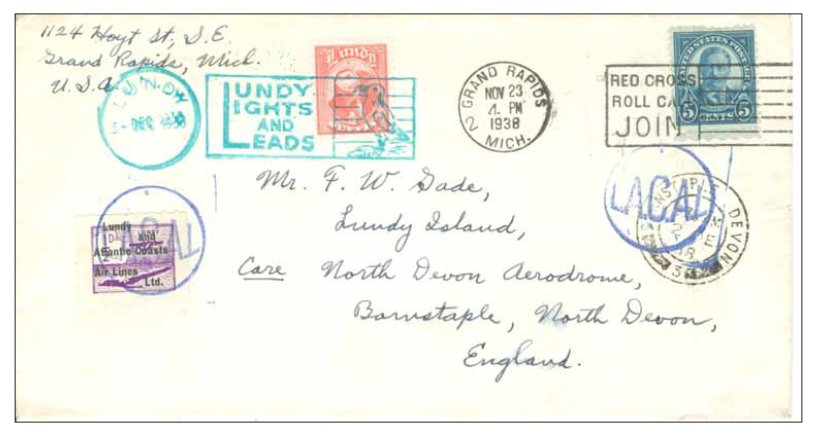 1124 Hoyt St, S.E.
Grand Rapids, Mich.
U.S.A.
LUNDY
DEC 1938
LUNDY
LIGHTS
AND
LEADS
Lundy
GRAND RAPIDS
NOV 23
4. PM
1938
2 MICH.
RED CROSS
ROLL CA
JOIN
UNITED STATES POSTAGE
5 CENTS 5
Mr. F. W. Gade,
Lundy Island,
Care North Devon Aerodrome,
Barnstaple, North Devon,
England.
LACAL
Lundy
and
Atlantic Coasts
Air Lines
Ltd.
LACAL
DEVON